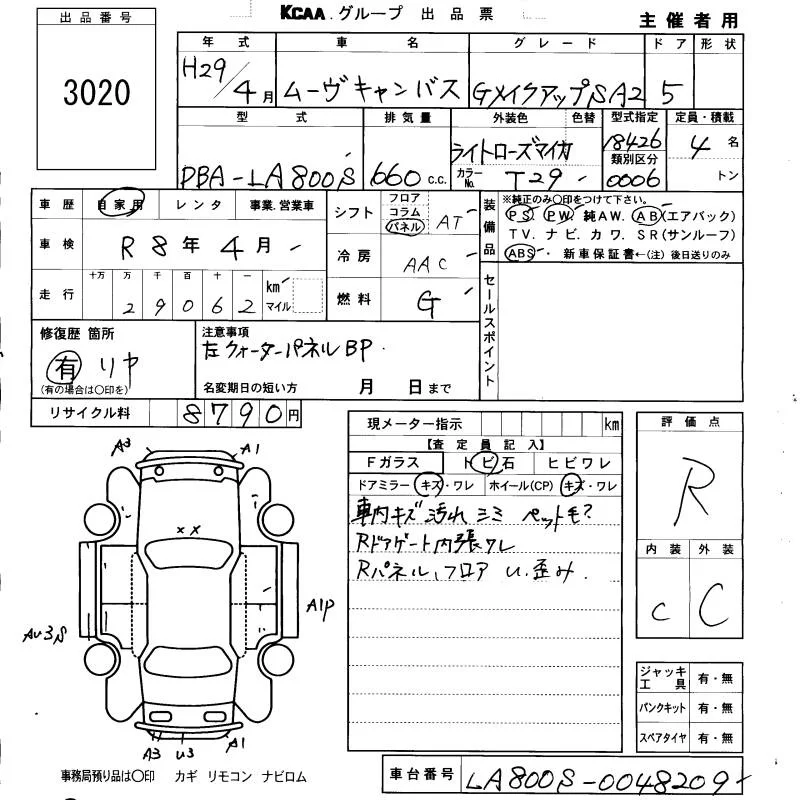 KCAA.グループ 出品票
主催者用
出品番号
3020
年式 車名 グレード ドア 形状
H29/4月 ムーヴキャンバス GメイクアップSA2 5
型式 排気量 外装色 色替 型式指定 定員・積載
DBA-LA800S 660c.c. ライトローズマイカ 18426 4名
カラーNo. T29 類別区分 0006 トン
車歴 自家用 レンタ 事業.営業車
車検 R8年4月
走行 十万 万 千 百 十 一
29062 km マイル
シフト フロア コラム パネル AT
冷房 AAC
燃料 G
装備品 ※純正のみ○印をつけて下さい。
PS PW 純AW. AB(エアバック)
TV. ナビ. カワ. SR(サンルーフ)
ABS. 新車保証書←(注)後日送りのみ
セールスポイント
修復歴 箇所
有 リヤ
(有の場合は○印を)
注意事項
左クォーターパネルBP.
名変期日の短い方 月 日まで
リサイクル料 8790円
現メーター指示 km
【査定員記入】
Fガラス トビ石 ヒビワレ
ドアミラー キズ・ワレ ホイール(CP) キズ・ワレ
車内キズ 汚れ シミ ペット毛?
Rドアゲート内張ワレ
Rパネル、フロア U.歪み.
評価点
R
内装 外装
C C
ジャッキ工具 有・無
パンクキット 有・無
スペアタイヤ 有・無
A3 A1
XX
A1P
AU3S
A3 U3 A1
事務局預り品は○印 カギ リモコン ナビロム
車台番号 LA800S-0048209